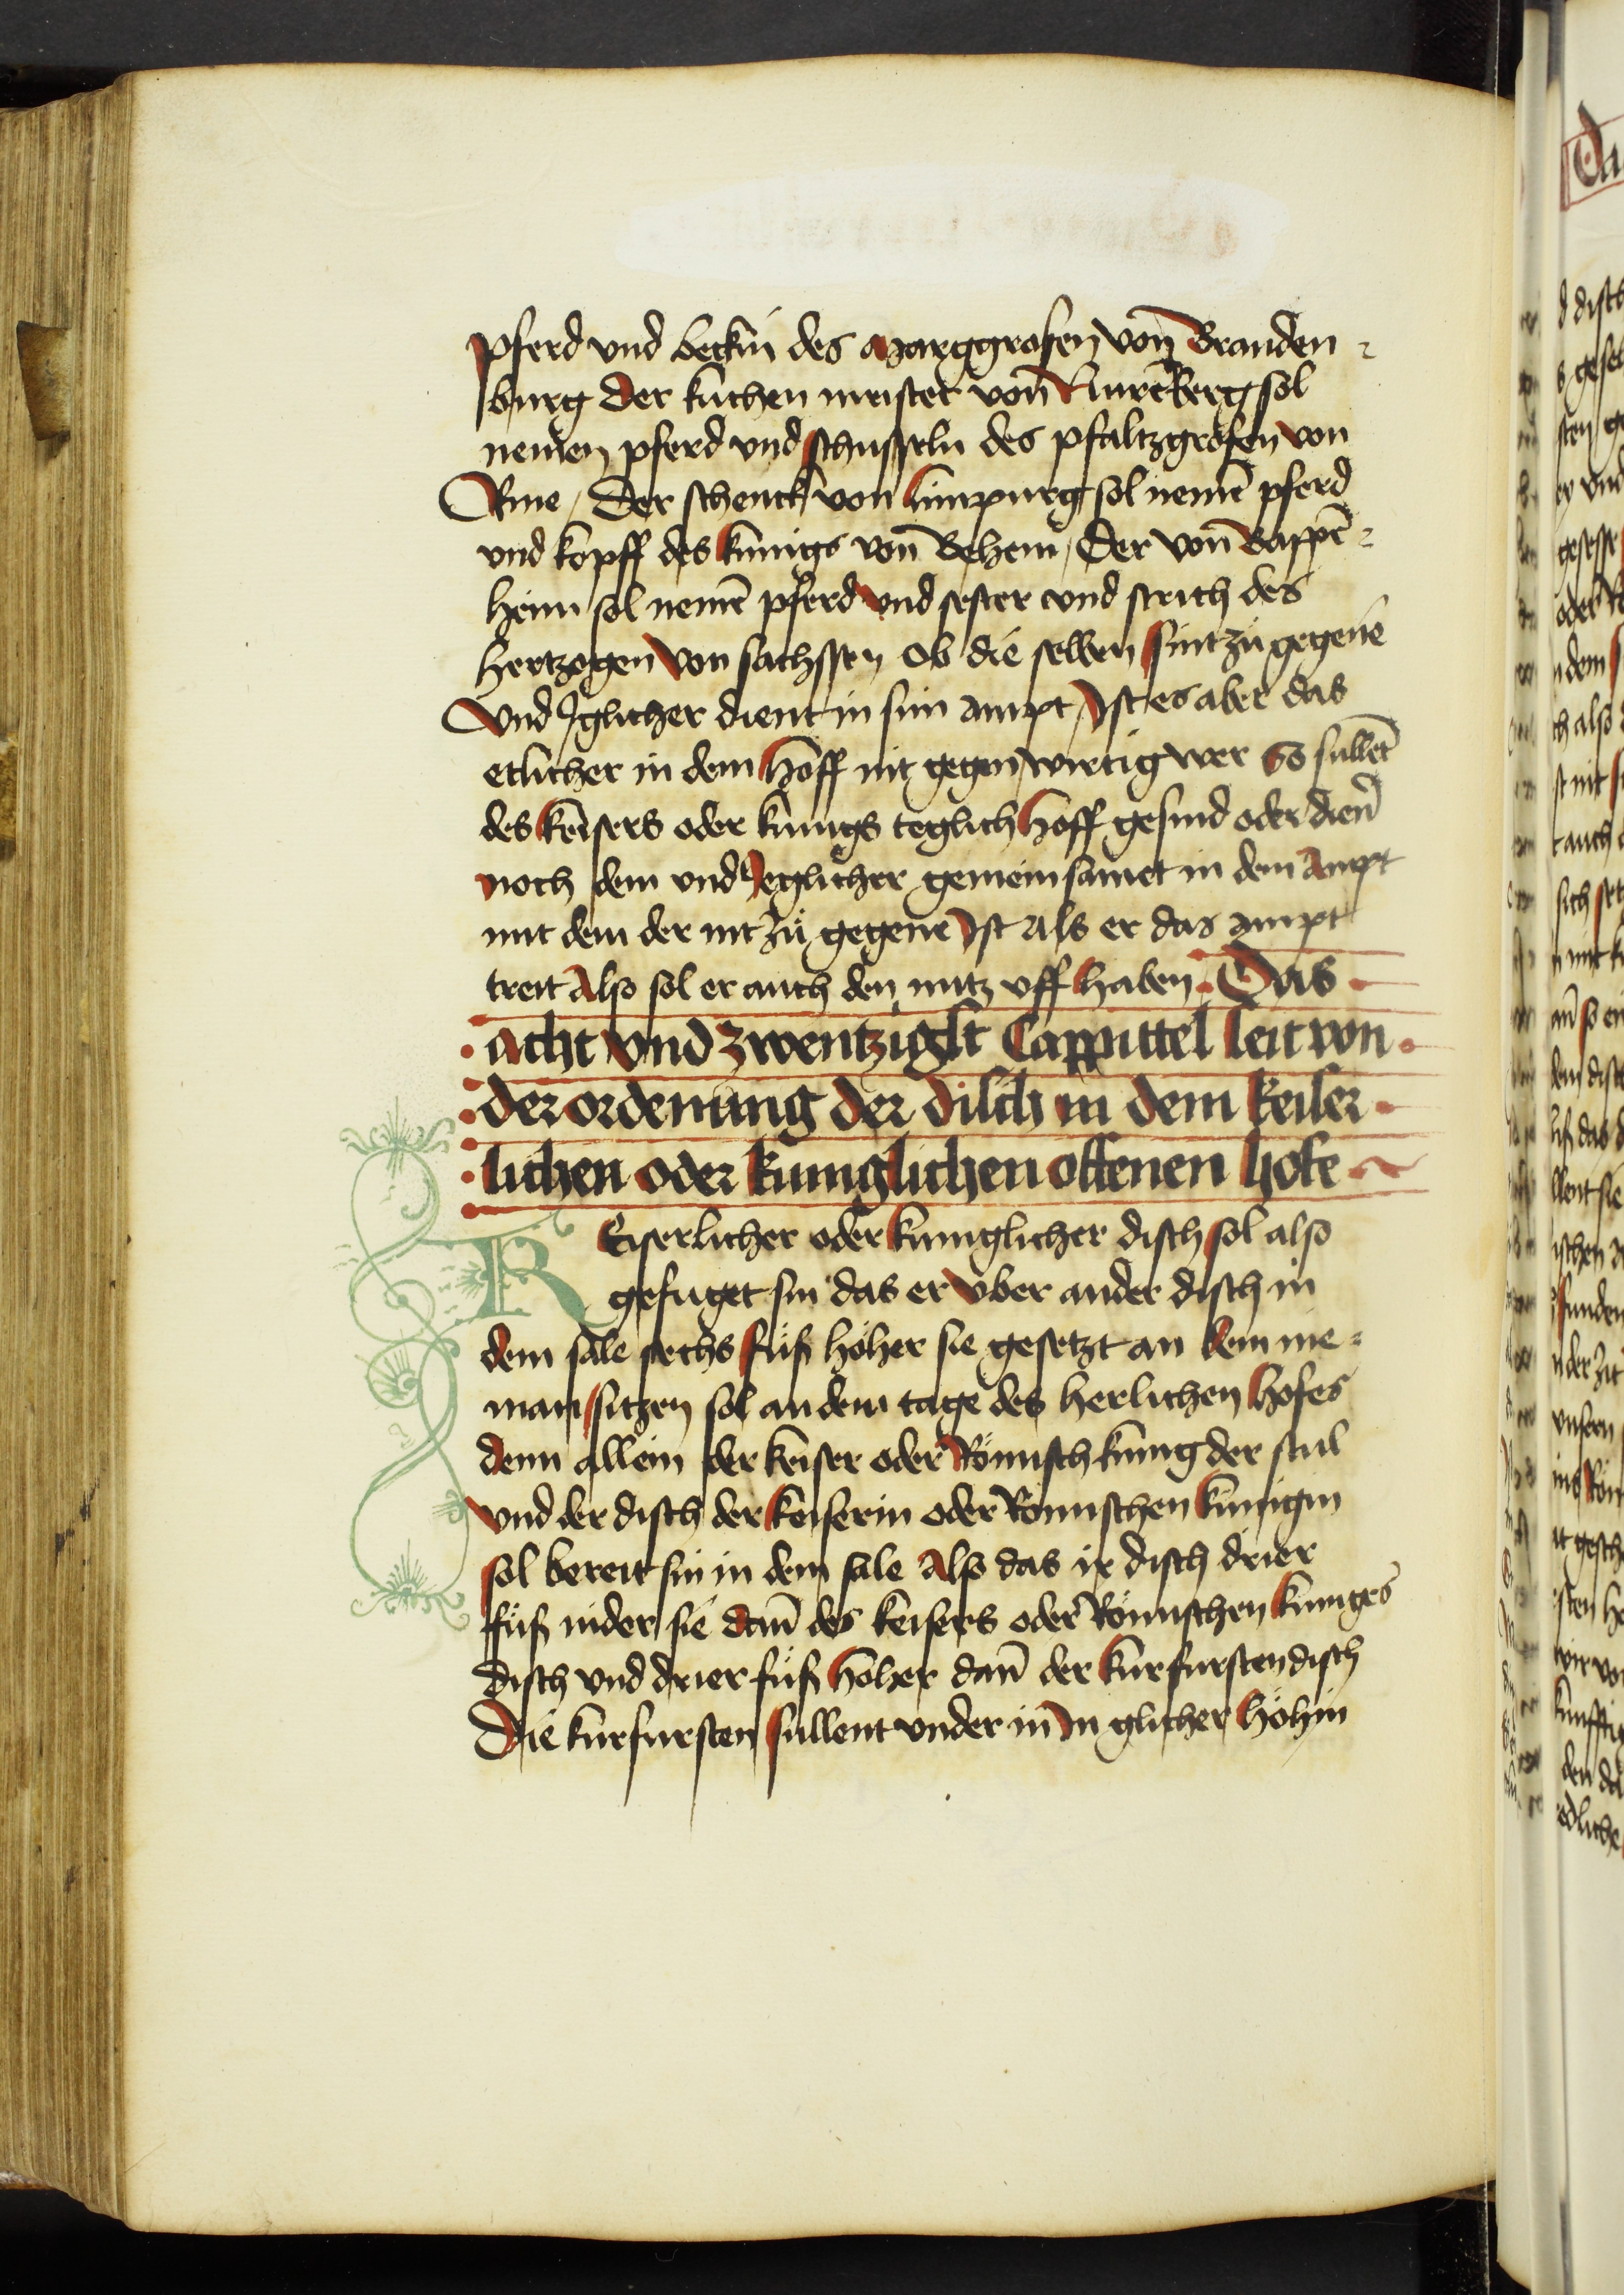 pferd vnd beckin des Marggrafen von̄ Branden⸗
burg Der kuchen meister von̄ Nurēberg sol
nemen pferd vnd schusseln des pfaltzgrofen von
Rine / Der schenck von limpurg sol nemē pferd
vnd kopff des kunigs von̄ Behem / Der von̄ Bappē⸗
heim sol nemē pferd vnd sester vnd strich des
hertzogen von sachssen Ob die selben sint zů gegene
Vnd Iglicher dient in sim ampt / Ist es aber das
etlicher in dem Hoff nit gegenwirtig wer So sullēt
des keisers oder kunigs teglich Hoff gesind oder dien̄
noch dem vnd Jeglicher gemeinsamet in dem Ampt
mit dem der nit zů gegene Ist Als er das ampt
treit Also sol er auch den nutz vff haben · Das
acht vnd zwentzigst Cappittel seit von
der ordenung der disch in dem keiser
lichen oder kuniglichen offenen hofe
K Eiserlicher oder kuniglicher disch sol also
gefuget sin das er vber ander disch in
dem sale sechs fůß höher sie gesetzt an dem nie⸗
man sitzen sol an dem tage des herlichen Hofes
denn allein der keiser oder Römisch kunig der stul
vnd der disch der keiserin oder Römischen kunigin
sol bereit sin in dem sale Also das ir disch drier
fůß nider sie dan̄ des keisers oder Römischen kuniges
disch vnd drier fůß Höher dan̄ der kurfursten disch
Die kurfursten sullent vnder in In glicher höhin